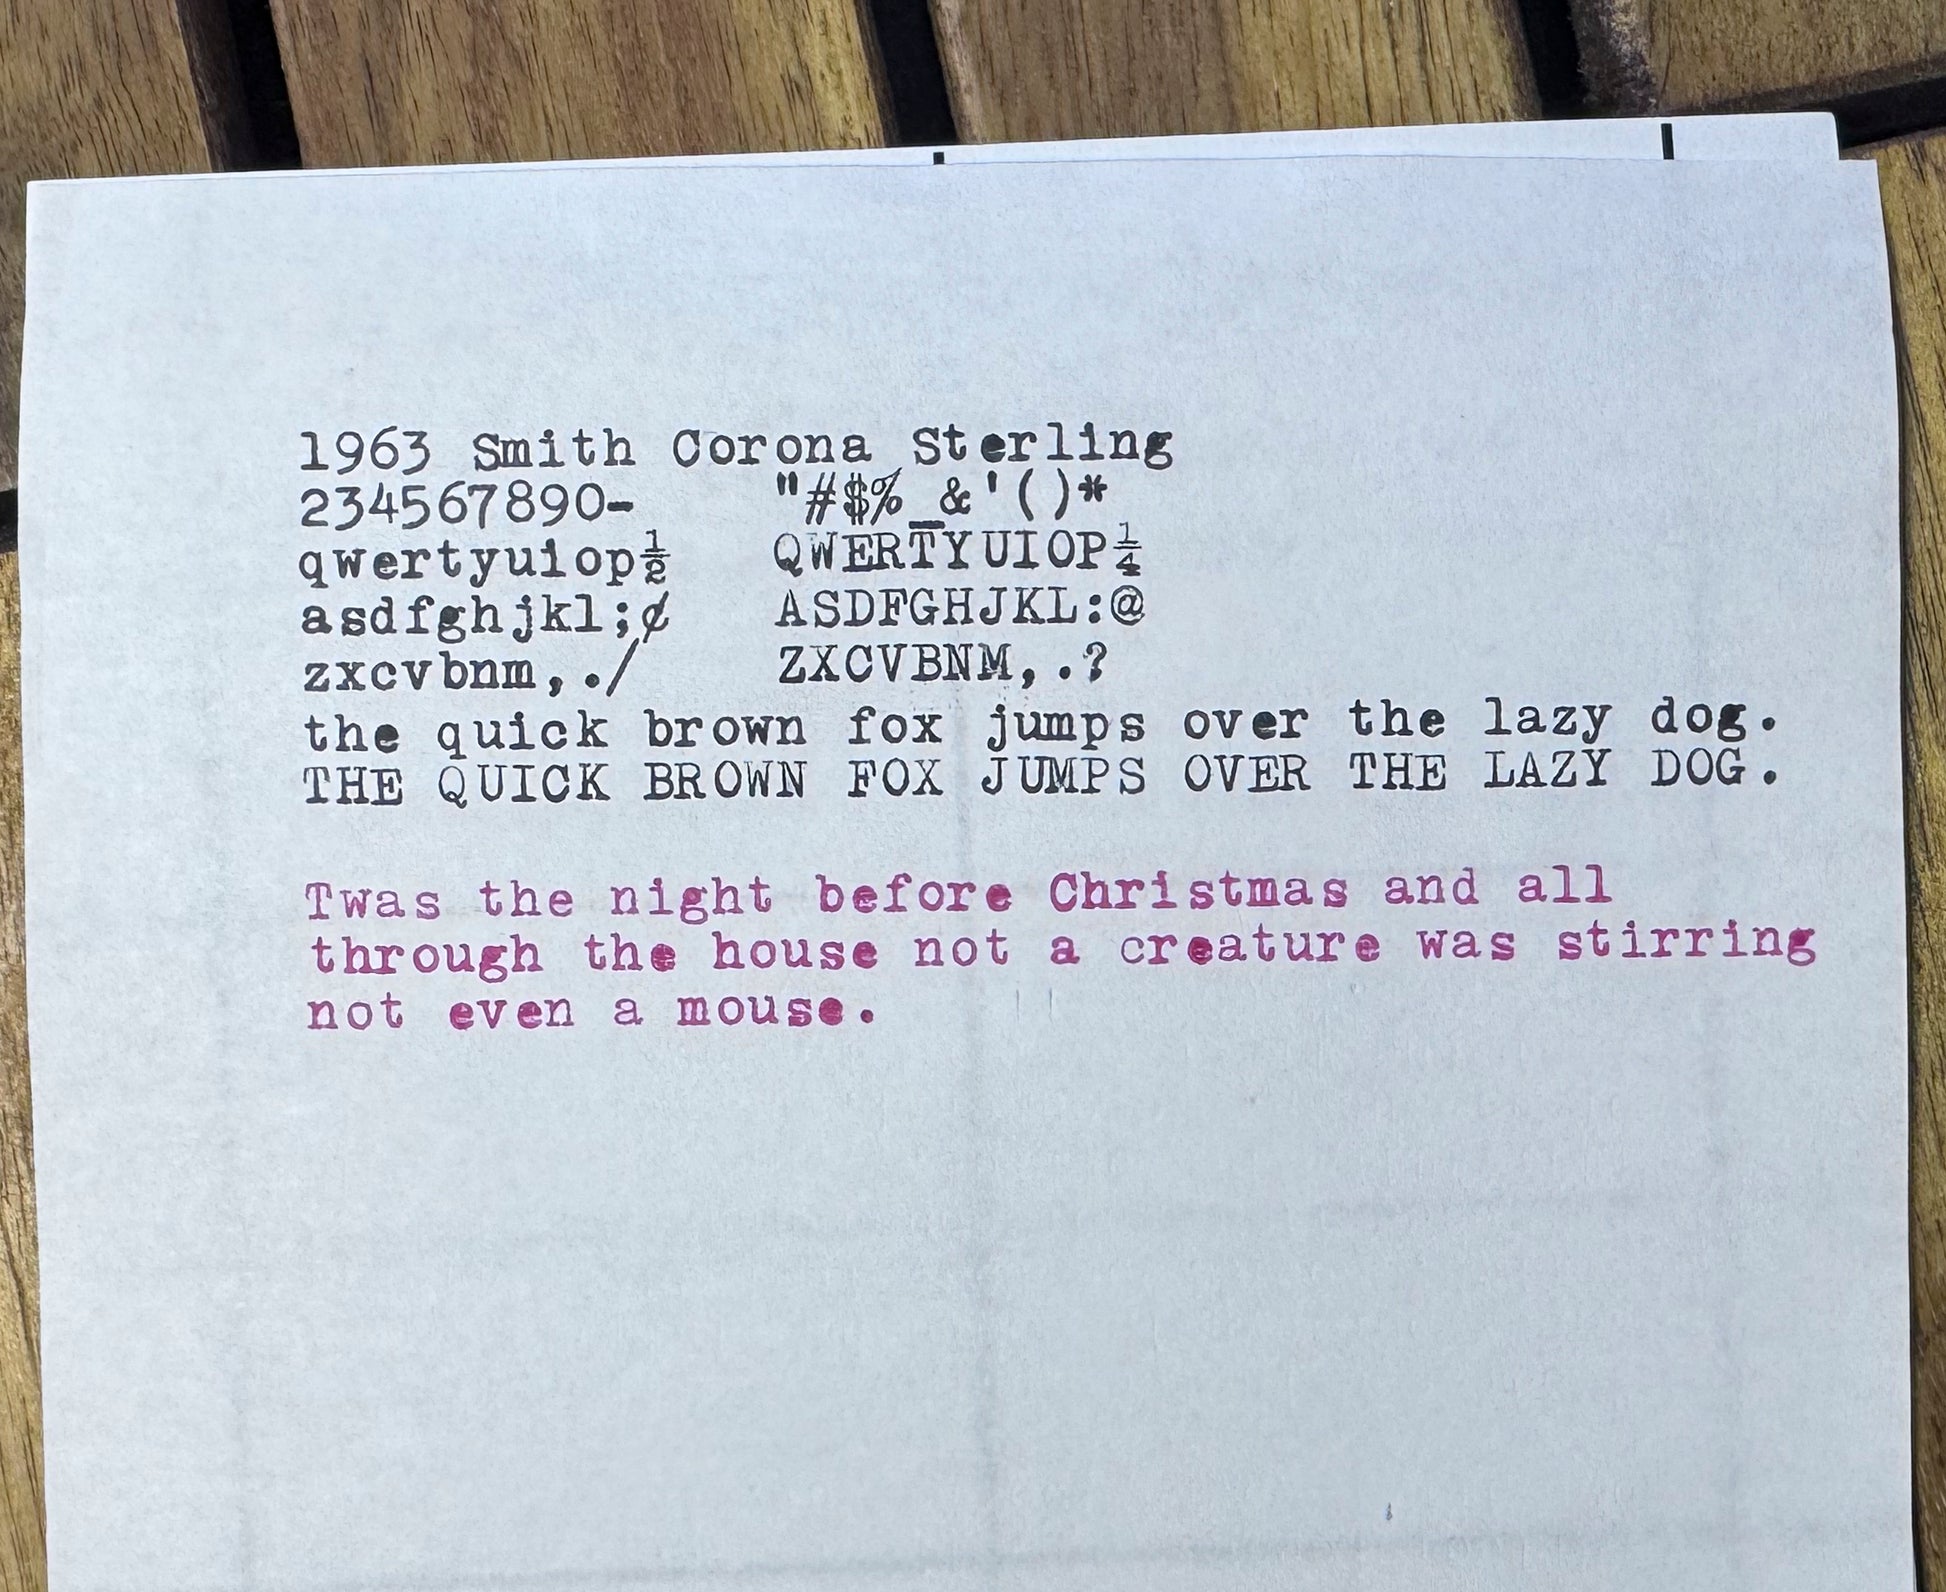 1963 Smith Corona Sterling
234567890-    "#$%_&'()*
qwertyuiop½   QWERTYUIOP¼
asdfghjkl;¢   ASDFGHJKL:@
zxcvbnm,./    ZXCVBNM,.?
the quick brown fox jumps over the lazy dog.
THE QUICK BROWN FOX JUMPS OVER THE LAZY DOG.
Twas the night before Christmas and all
through the house not a creature was stirring
not even a mouse.